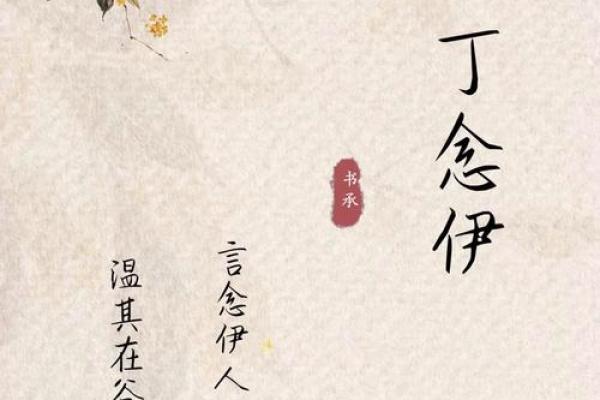 丁念伊
书承
言念伊人
温其在